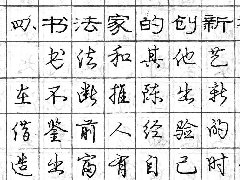 四、书法家的创新
书法和其他艺
在不断推陈出新
借鉴前人经验的
造出富有自己时